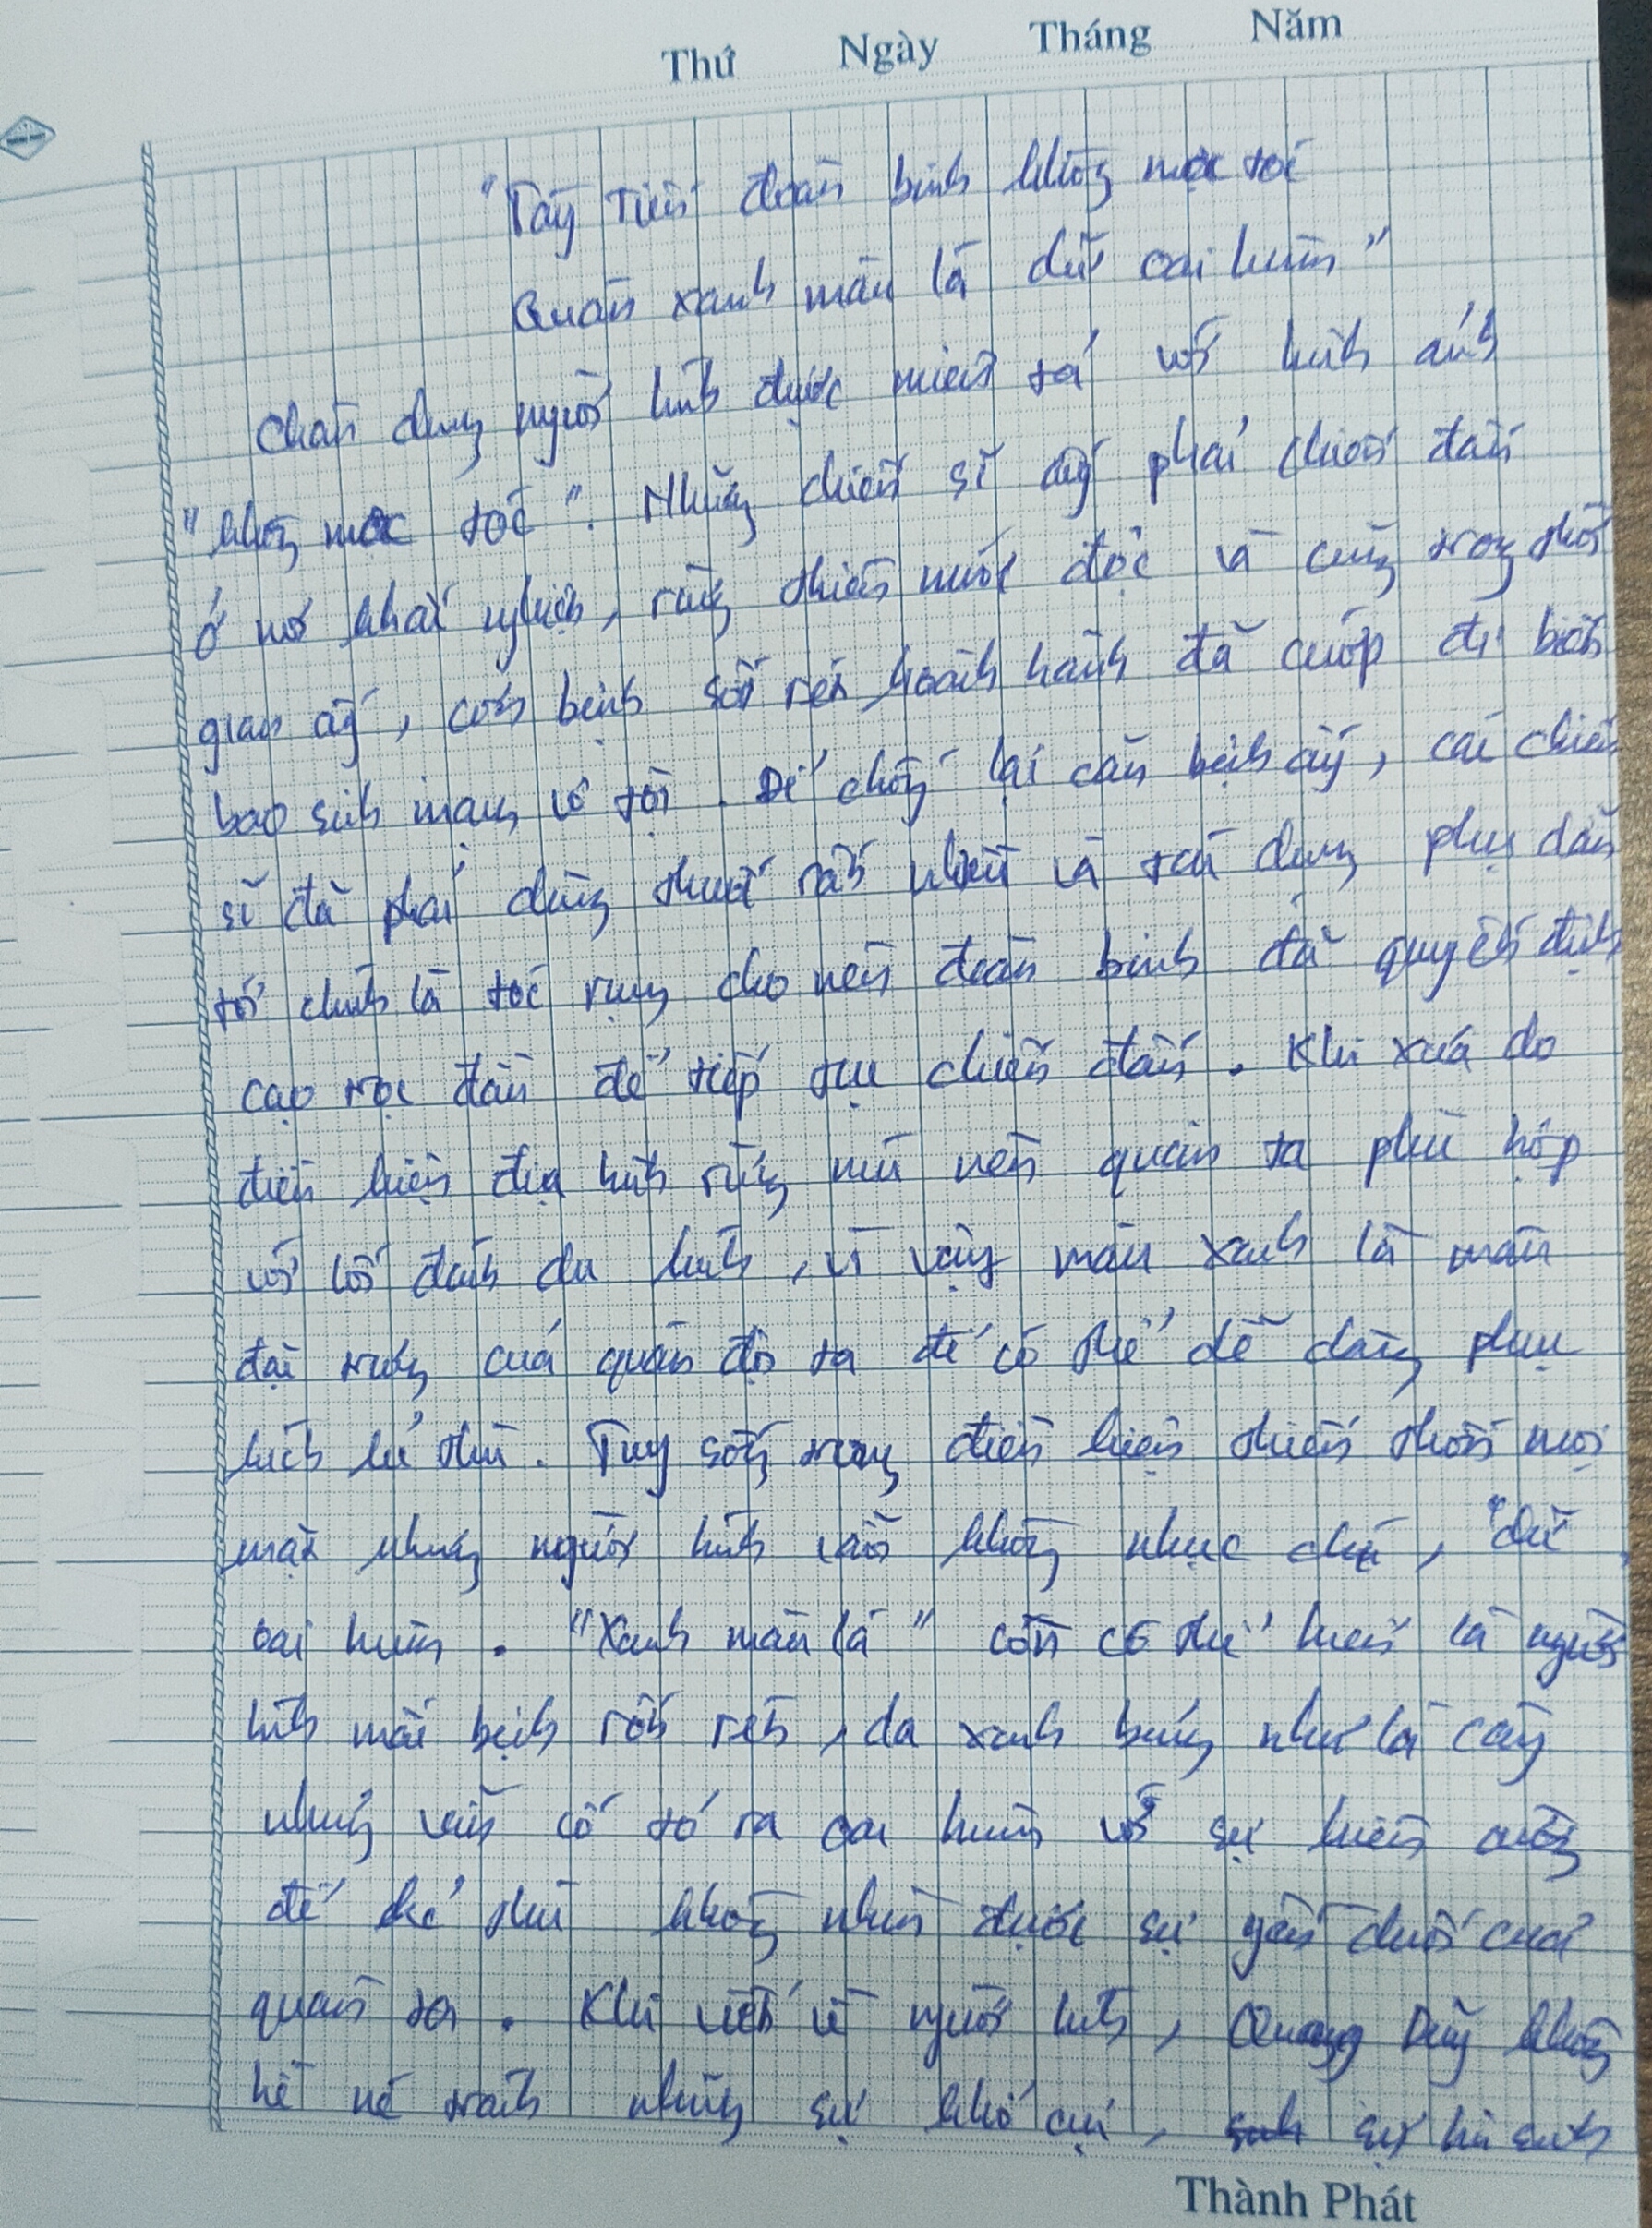 Thứ Ngày Tháng Năm
"Tây Tiến đoàn binh không mọc tóc
Quân xanh màu lá dữ oai hùm"
Chân dung người lính được miêu tả với hình ảnh
"không mọc tóc". Những chiến sĩ ấy phải chiến đấu
ở nơi khắc nghiệt, rừng thiêng nước độc và cũng trong thời
gian ấy, cơn bệnh sốt rét hoành hành đã cướp đi biết
bao sinh mạng vô tội. Để chống lại căn bệnh ấy, các chiến
sĩ đã phải dùng thuốc rất nhiều và tác dụng phụ dẫn
tới chính là tóc rụng cho nên đoàn binh đã quyết định
cạo trọc đầu để tiếp tục chiến đấu. Khi xưa do
điều kiện địa hình rừng núi nên quân ta phù hợp
với lối đánh du kích, vì vậy màu xanh là màu
đại trưng của quân đội ta để có thể dễ dàng phục
kích kẻ thù. Tuy sống trong điều kiện thiếu thốn mọi
mặt nhưng người lính vẫn không nhục chí, "dữ
oai hùm. "Xanh màu lá" còn có thể hiểu là người
lính mắc bệnh rốt rét, da xanh bủng như lá cây
nhưng vẫn cố tỏ ra oai hùm với sự kiên cường
để kẻ thù không nhìn được sự yếu đuối của
quân ta. Khi viết về người lính, Quang Dũng không
hề né tránh những sự khổ cực, sự hi sinh
Thành Phát